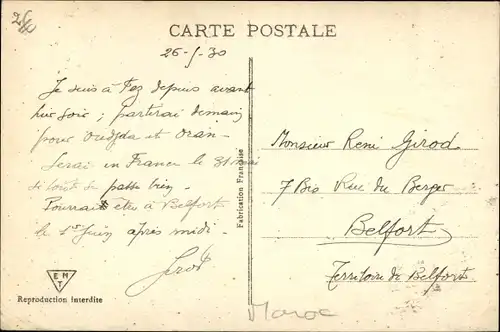 CARTE POSTALE
26-5-30
Je suis à Fez depuis avant
hier soir ; partirai demain
pour Oudjda et Oran -
Serai en France le 31 mai
si tout se passe bien -
Pourrais être à Belfort
le 1er Juin après midi -
Girod
Fabrication Française
Monsieur René Girod
7 Bis Rue du Berger
Belfort
Territoire de Belfort
EHT
Reproduction interdite
Maroc